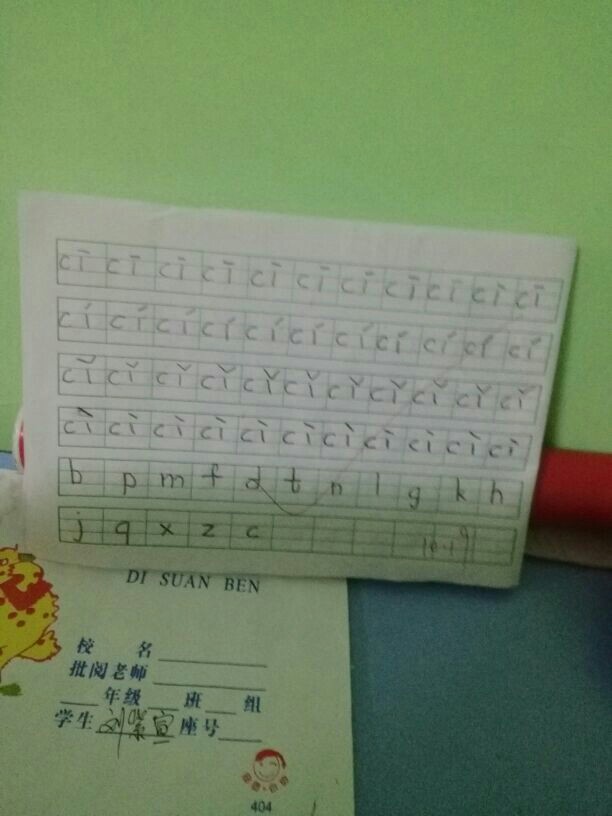 cī cī cī cī cī cī cī cī cī cī cī
cí cí cí cí cí cí cí cí cí cí cí
cǐ cǐ cǐ cǐ cǐ cǐ cǐ cǐ cǐ cǐ cǐ
cì cì cì cì cì cì cì cì cì cì cì
b p m f d t n l g k h
j q x z c
DI SUAN BEN
校 名
批阅老师
年级 班 组
学生 刘 宣 座号
404